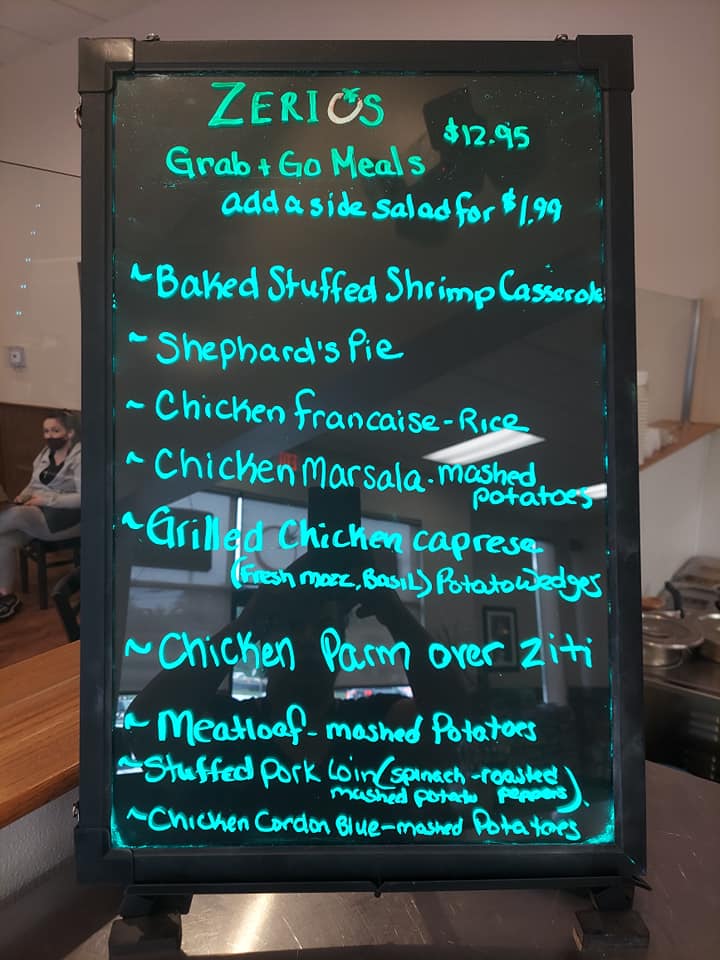 ZERIOS
$12.95
Grab + Go Meals
add a side salad for $1.99
~Baked Stuffed Shrimp Casserole
~Shephard's Pie
~Chicken francaise-Rice
~Chicken Marsala-mashed
potatoes
~Grilled Chicken caprese
(Fresh mozz, Basil) Potato Wedges
~Chicken Parm over ziti
~Meatloaf-mashed Potatoes
~Stuffed pork Loin (spinach-roasted
mashed potato peppers)
~Chicken Cordon Blue-mashed Potatoes